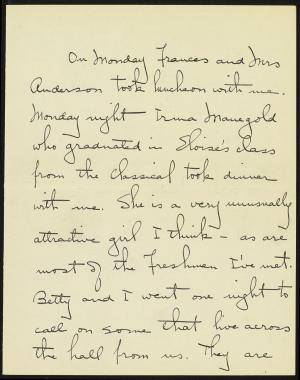 On Monday Frances and Mrs
Anderson took luncheon with me.
Monday night Irma Manegold
who graduated in Eloise's class
from the Classical took dinner
with me. She is a very unusually
attractive girl I think – as are
most of the Freshmen I've met.
Betty and I went one night to
call on some that live across
the hall from us. They are